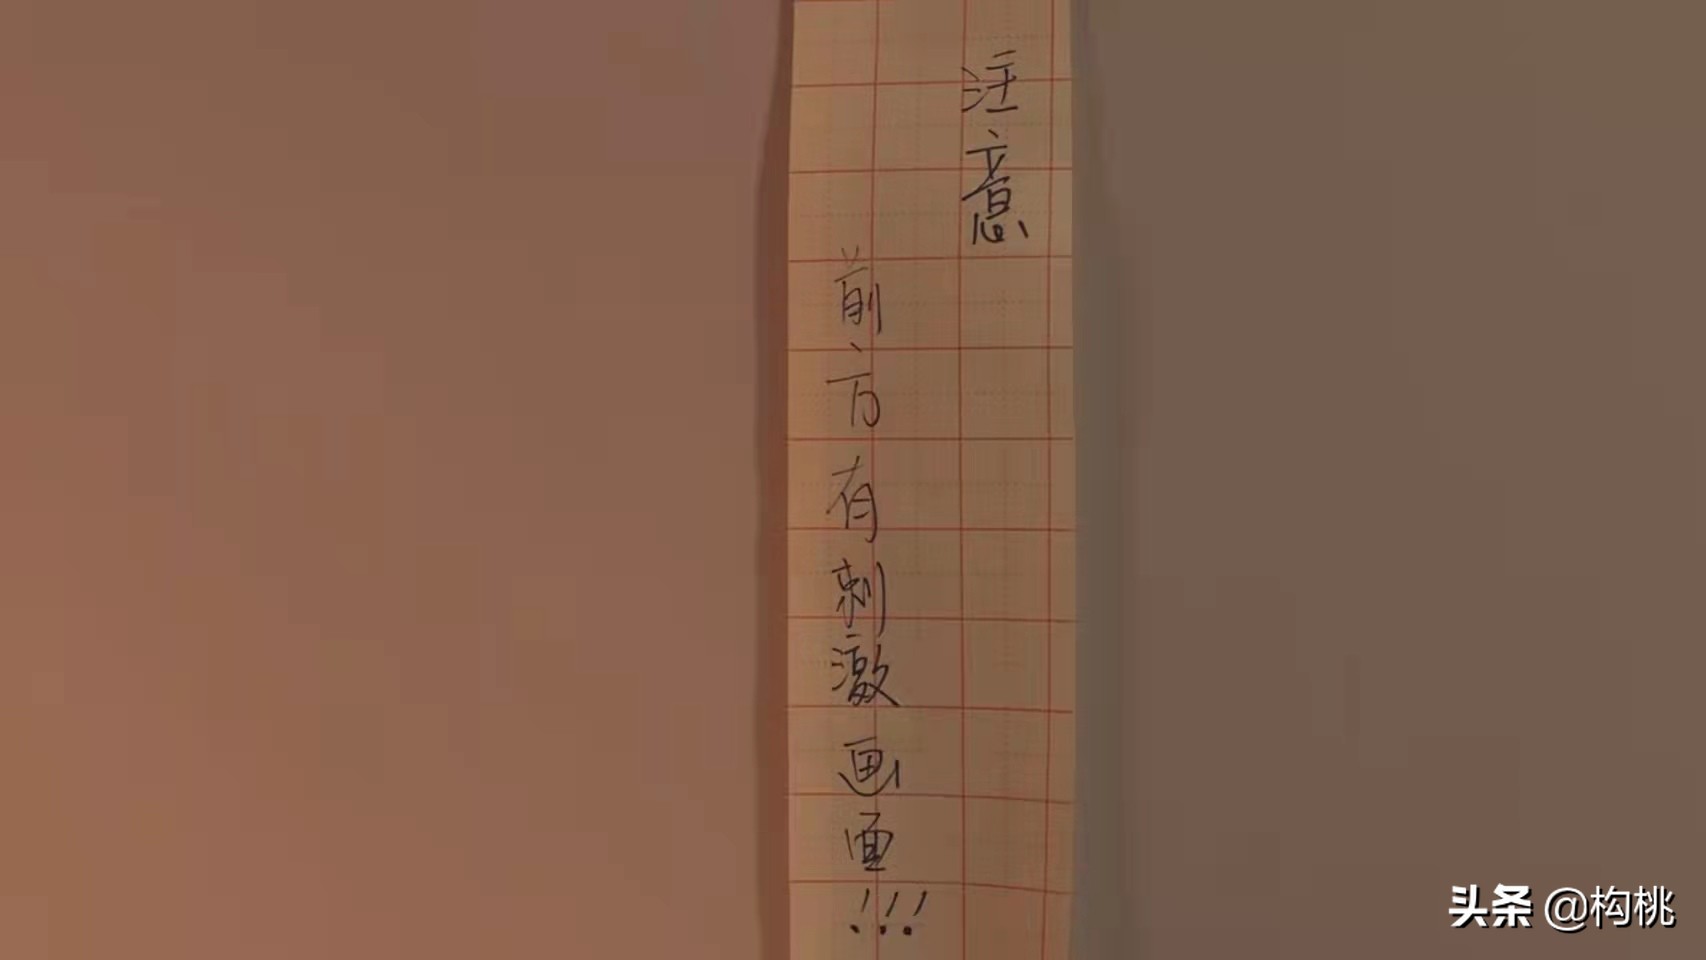 注意
前方有刺激画面!!!
头条 @构桃